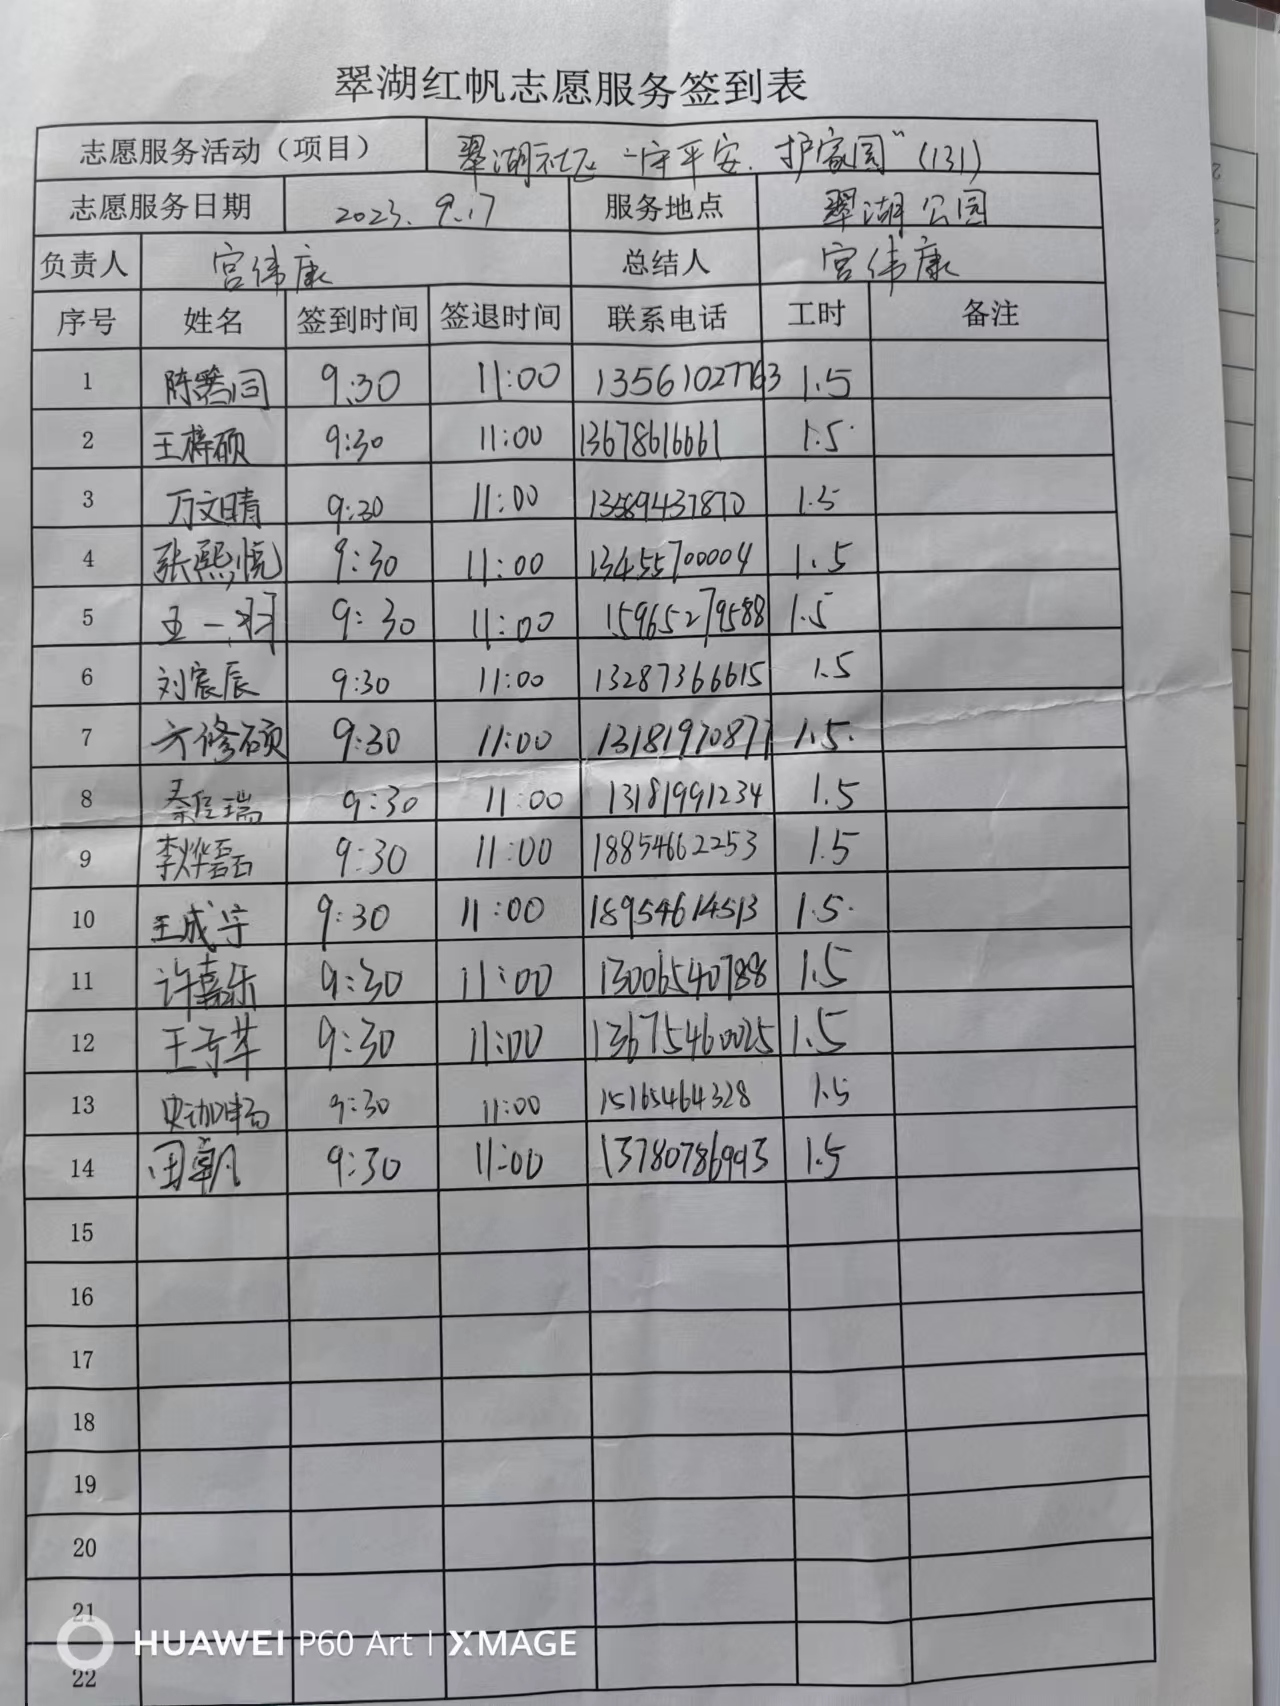 翠湖红帆志愿服务签到表
志愿服务活动（项目） 翠湖社区“守平安.护家园”（131）
志愿服务日期 2023.9.17 服务地点 翠湖公园
负责人 宫伟康 总结人 宫伟康
序号 姓名 签到时间 签退时间 联系电话 工时 备注
1 9:30 11:00 13561027763 1.5
2 王梓硕 9:30 11:00 13678616661 1.5
3 万文晴 9:30 11:00 13589437870 1.5
4 张熙悦 9:30 11:00 13455700004 1.5
5 王一羽 9:30 11:00 15965279588 1.5
6 刘宸辰 9:30 11:00 13287366615 1.5
7 方修硕 9:30 11:00 13181970877 1.5
8 秦绥瑞 9:30 11:00 13181991234 1.5
9 李烨磊 9:30 11:00 18854662253 1.5
10 王成宇 9:30 11:00 18954614513 1.5
11 许嘉乐 9:30 11:00 13006540788 1.5
12 9:30 11:00 13675460025 1.5
13 9:30 11:00 15165464328 1.5
14 田朝 9:30 11:00 13780786993 1.5
15
16
17
18
19
20
21
22
HUAWEI P60 Art | XMAGE